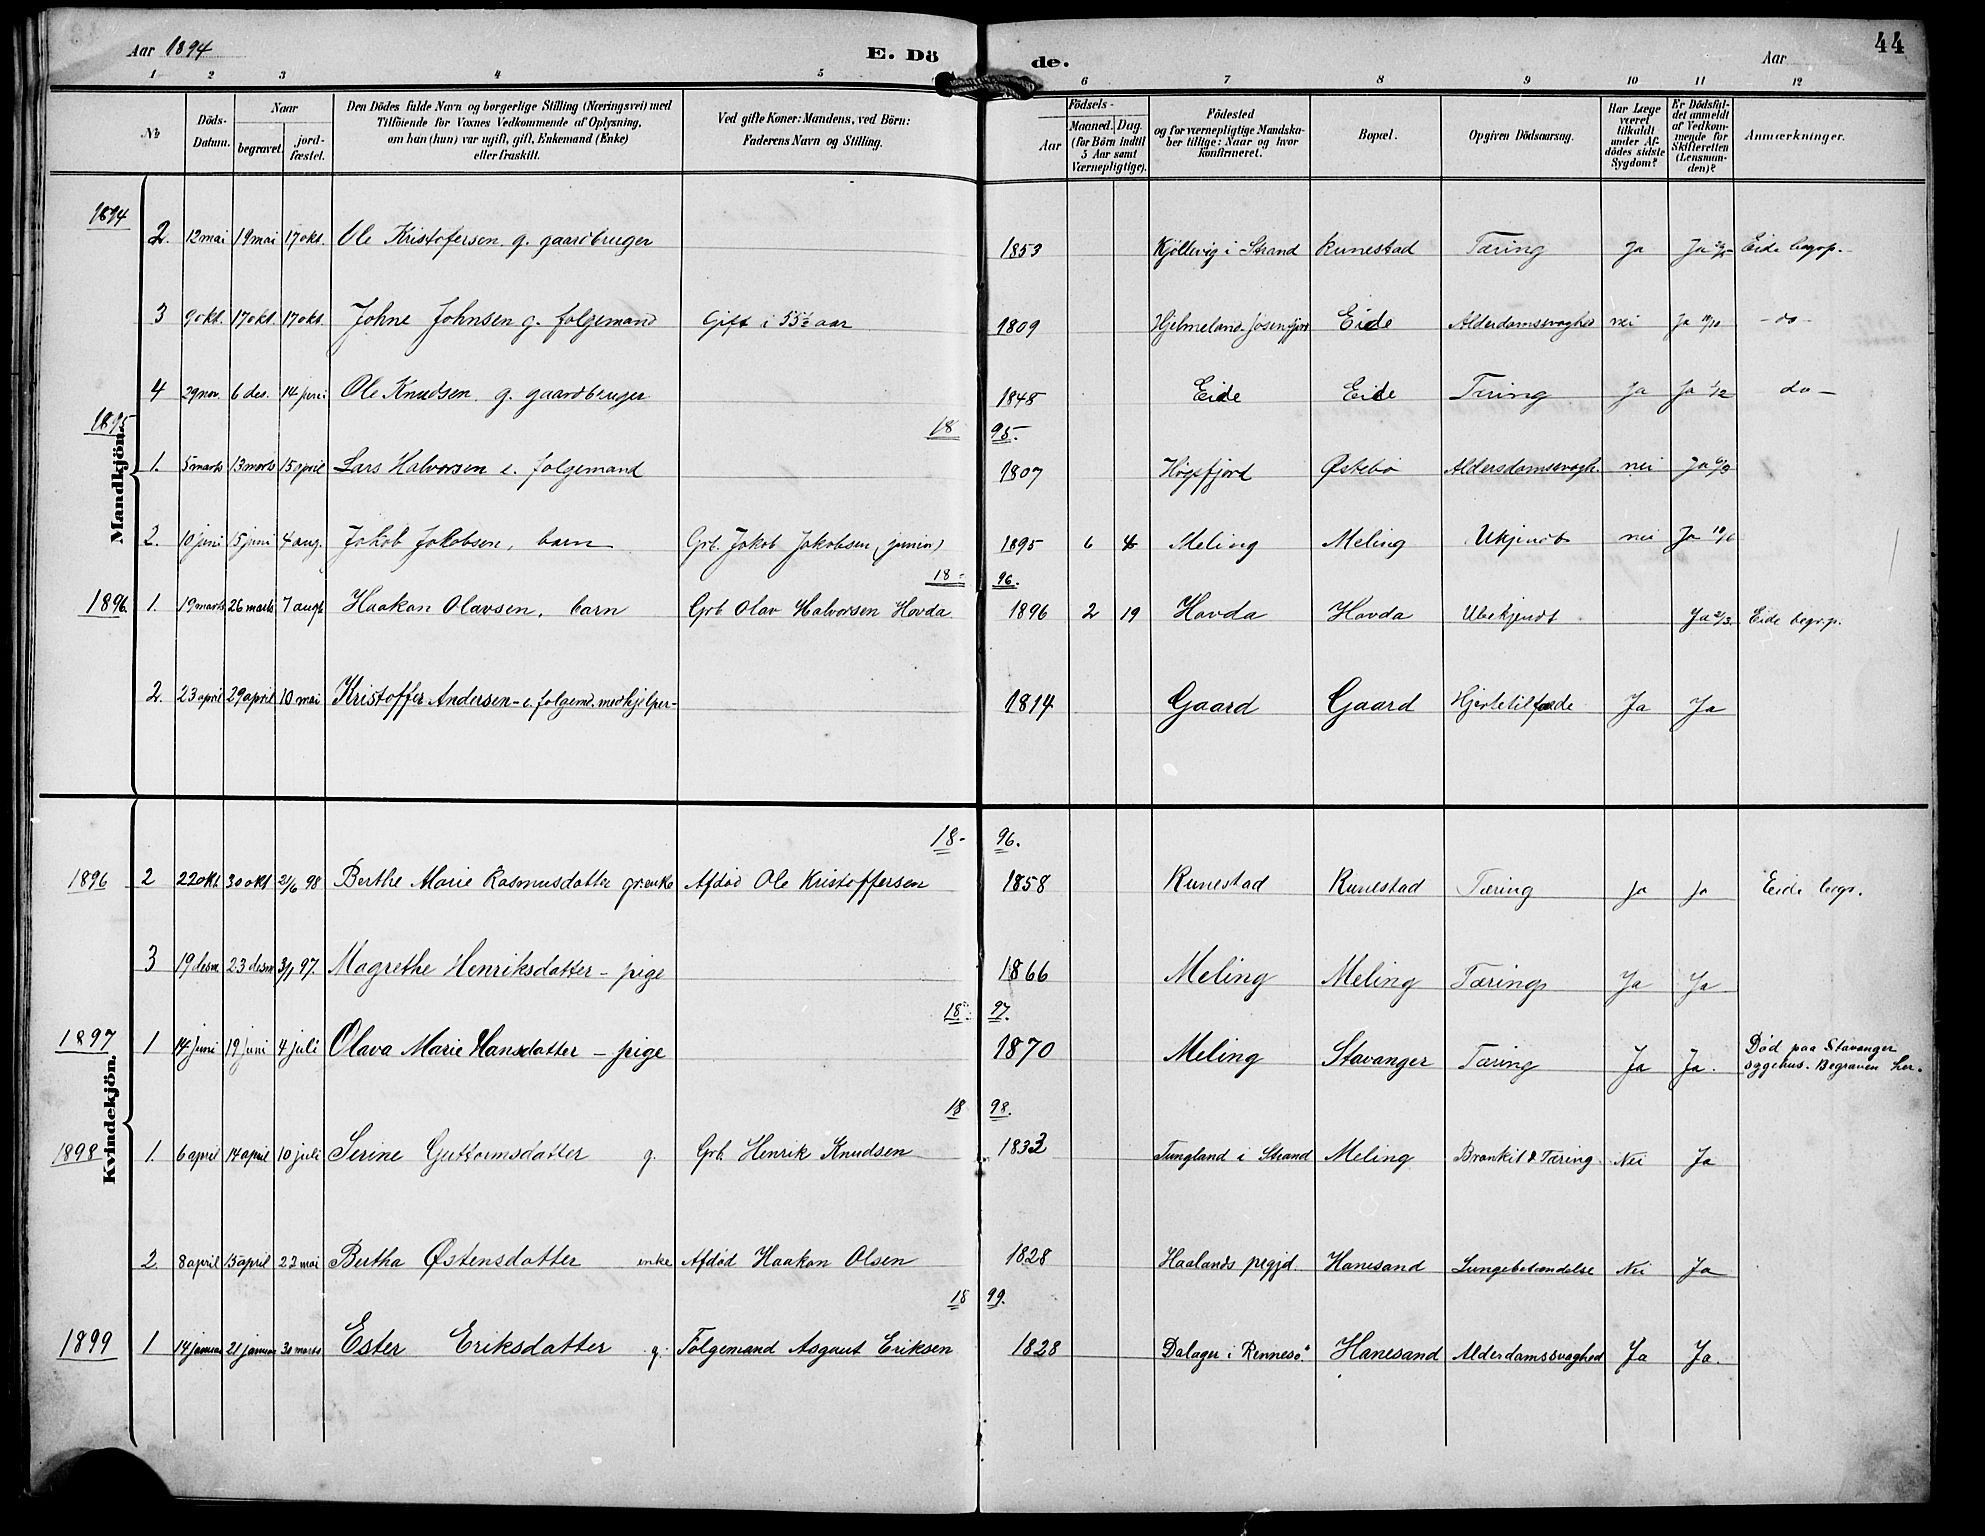 Aar 1894 E. Dö de. Aar 44
1 2 3 4 5 6 7 8 9 10 11 12
No
Döds-Datum.
Naar
begravet.
jord-fæstet.
Den Dödes fulde Navn og borgerlige Stilling (Næringsvei) med
Tilföiende for Voxnes Vedkommende af Oplysning,
om han (hun) var ugift, gift, Enkemand (Enke)
eller fraskilt.
Ved gifte Koner: Mandens, ved Börn:
Faderens Navn og Stilling.
Födsels-
Aar
Maaned. Dag.
(for Börn indtil
5 Aar samt
Værnepligtige).
Födested
og for værnepligtige Mandska-
ber tillige: Naar og hvor
konfirmeret.
Bopæl.
Opgiven Dödsaarsag.
Har Læge
været
tilkaldt
under Af-
dödes sidste
Sygdom?
Er Dödsfal-
det anmeldt
af Vedkom-
mende for
Skifteretten
(Lensman-
den)?
Anmærkninger.
Mandkjön.
1894
2. 12 mai 19 mai 17 okt. Ole Kristofersen g. gaardbruger 1853 Kjöllevig i Strand Runestad Tæring Ja Ja Eide begrp.
3 9 okt. 17 okt. 17 okt. Johne Johnsen g. folgemand Gift i 55½ aar 1809 Hjelmeland Jösenfjord Eide Alderdomssvaghed nei Ja -do-
4 29 nov. 6 des. 14 juni Ole Knudsen g. gaardbruger 1848 Eide Eide Tæring Ja Ja 1/12 do-
1895 18 95.
1. 5 marts 13 marts 15 april Lars Halvorsen e. folgemand 1807 Högsfjord Østebö Aldersdomssvagh. nei Ja
2. 10 juni 15 juni 4 aug. Jakob Jakobsen, barn Grb. Jakob Jakobsen (junior) 1895 6 Meling Meling Ukjendt nei Ja 10/6
18- 96.
1896 1. 19 marts 26 marts 7 augt Haakon Olavsen, barn Grb Olav Halvorsen Hovda 1896 2 19 Hovda Hovda Ubekjendt Ja Eide begr.p.
2. 23 april 29 april 10 mai Kristoffer Andersen - e. folgem. medhjelper- 1814 Gaard Gaard Hjertetilfælde Ja Ja
Kvindekjön.
18- 96.
1896 2 22 okt. 30 okt 2/6 98 Berthe Marie Rasmusdatter gr.enke Afdöd Ole Kristoffersen 1858 Runestad Runestad Tæring Ja Ja Eide begr.
3 19 desm 23 desm 3/1 97. Magrethe Henriksdatter - pige 1866 Meling Meling Tærings Ja Ja
18- 97.
1897 1 14 juni 19 juni 4 juli Olava Marie Hansdatter - pige 1870 Meling Stavanger Tæring Ja Ja. Död paa Stavanger
sygehus. Begraven her.
18 98.
1898 1. 6 april 14 april 10 juli Serine Guttormsdatter g. Grb. Henrik Knudsen 1833 Tungland i Strand Meling Bronkit & Tæring. Nei Ja
2 8 april 15 april 22 mai Bertha Østensdatter enke Afdöd Haakon Olsen 1828 Haalands prgjd. Hanesand Lungebetændelse Nei Ja
18 99.
1899 1 14 januar 21 januar 30 marts Ester Eriksdatter g. Folgemand Asgaut Eriksen 1828 Dalager i Rennesö. Hanesand Alderdomssvaghed Ja Ja.